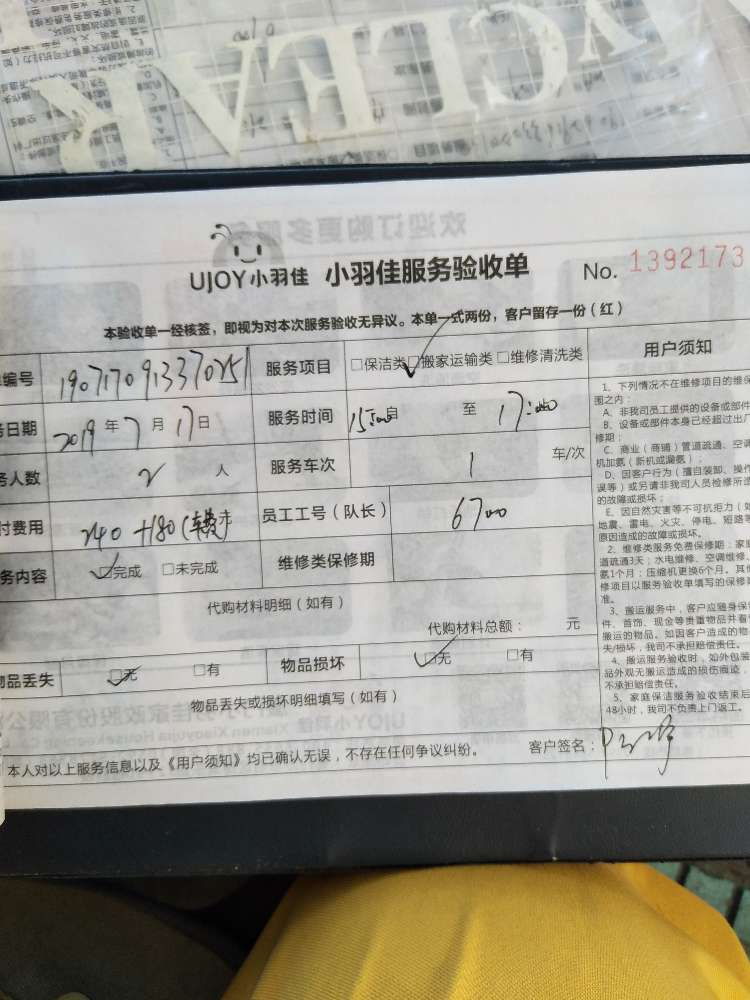 UJOY小羽佳 小羽佳服务验收单 No. 1392173
本验收单一经核签，即视为对本次服务验收无异议。本单一式两份，客户留存一份（红）
编号 190717091337025 服务项目 □保洁类 ☑搬家运输类 □维修清洗类
日期 2019年7月17日 服务时间 自 至
务人数 2 人 服务车次 1 车/次
付费用 240 +180 员工工号（队长） 67
务内容 ☑完成 □未完成 维修类保修期
代购材料明细（如有）
代购材料总额： 元
物品丢失 ☑无 □有 物品损坏 ☑无 □有
物品丢失或损坏明细填写（如有）
本人对以上服务信息以及《用户须知》均已确认无误，不存在任何争议纠纷。 客户签名：
用户须知
1、下列情况不在维修项目的维保
围之内：
A、非我司员工提供的设备或部件
B、设备或部件本身已经超过出厂
修期；
C、商业（商铺）管道疏通、空调
机加氨（新机或漏氨）；
D、因客户行为（擅自装卸、操作
误等）或另请非我司人员检修所造
的故障或损坏；
E、因自然灾害等不可抗拒力（如
地震、雷电、火灾、停电、短路等
原因造成的故障或损坏。
2、维修类服务免费保修期：家庭
道疏通3天；水电维修、空调维修、
氨1个月；压缩机更换6个月。其他
修项目以服务验收单填写的保修期
准。
3、搬运服务中，客户应随身保
件、首饰、现金等贵重物品并看
搬运的物品。如因客户造成的物
失/损坏，我司不承担赔偿责任。
4、搬运服务验收时，如外包装
品外观无搬运造成的损伤痕迹，
不承担赔偿责任。
5、家庭保洁服务验收结束后
48小时，我司不负责上门返工。